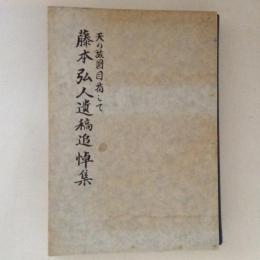 天の故国目指して
藤本弘人遺稿追悼集